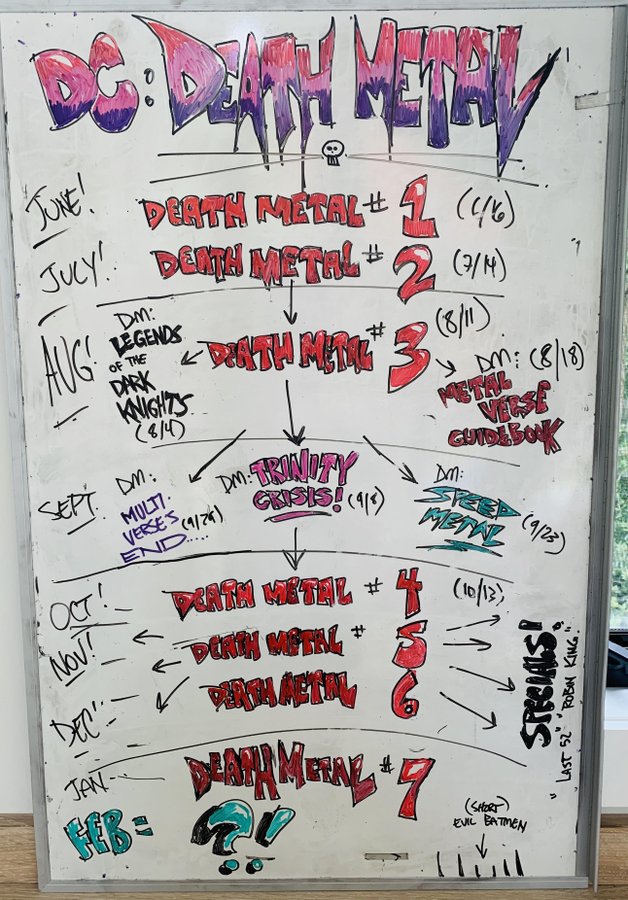 DC: DEATH METAL
JUNE!
DEATH METAL # 1 (6/16)
JULY!
DEATH METAL # 2 (7/14)
AUG!
DM:
LEGENDS
OF THE
DARK
KNIGHTS
(8/4)
DEATH METAL # 3 (8/11)
DM: (8/18)
METAL
VERSE
GUIDEBOOK
SEPT.
DM:
MULTI-
VERSE'S (9/29)
END.....
DM: TRINITY
CRISIS! (9/8)
DM:
SPEED
METAL (9/23)
OCT!
DEATH METAL # 4 (10/13)
NOV!
DEATH METAL # 5
DEC!
DEATH METAL 6
SPECIALS!
"LAST 52" "ROBIN KING"
JAN
DEATH METAL # 7
FEB = ?!
(SHORT)
EVIL BATMEN